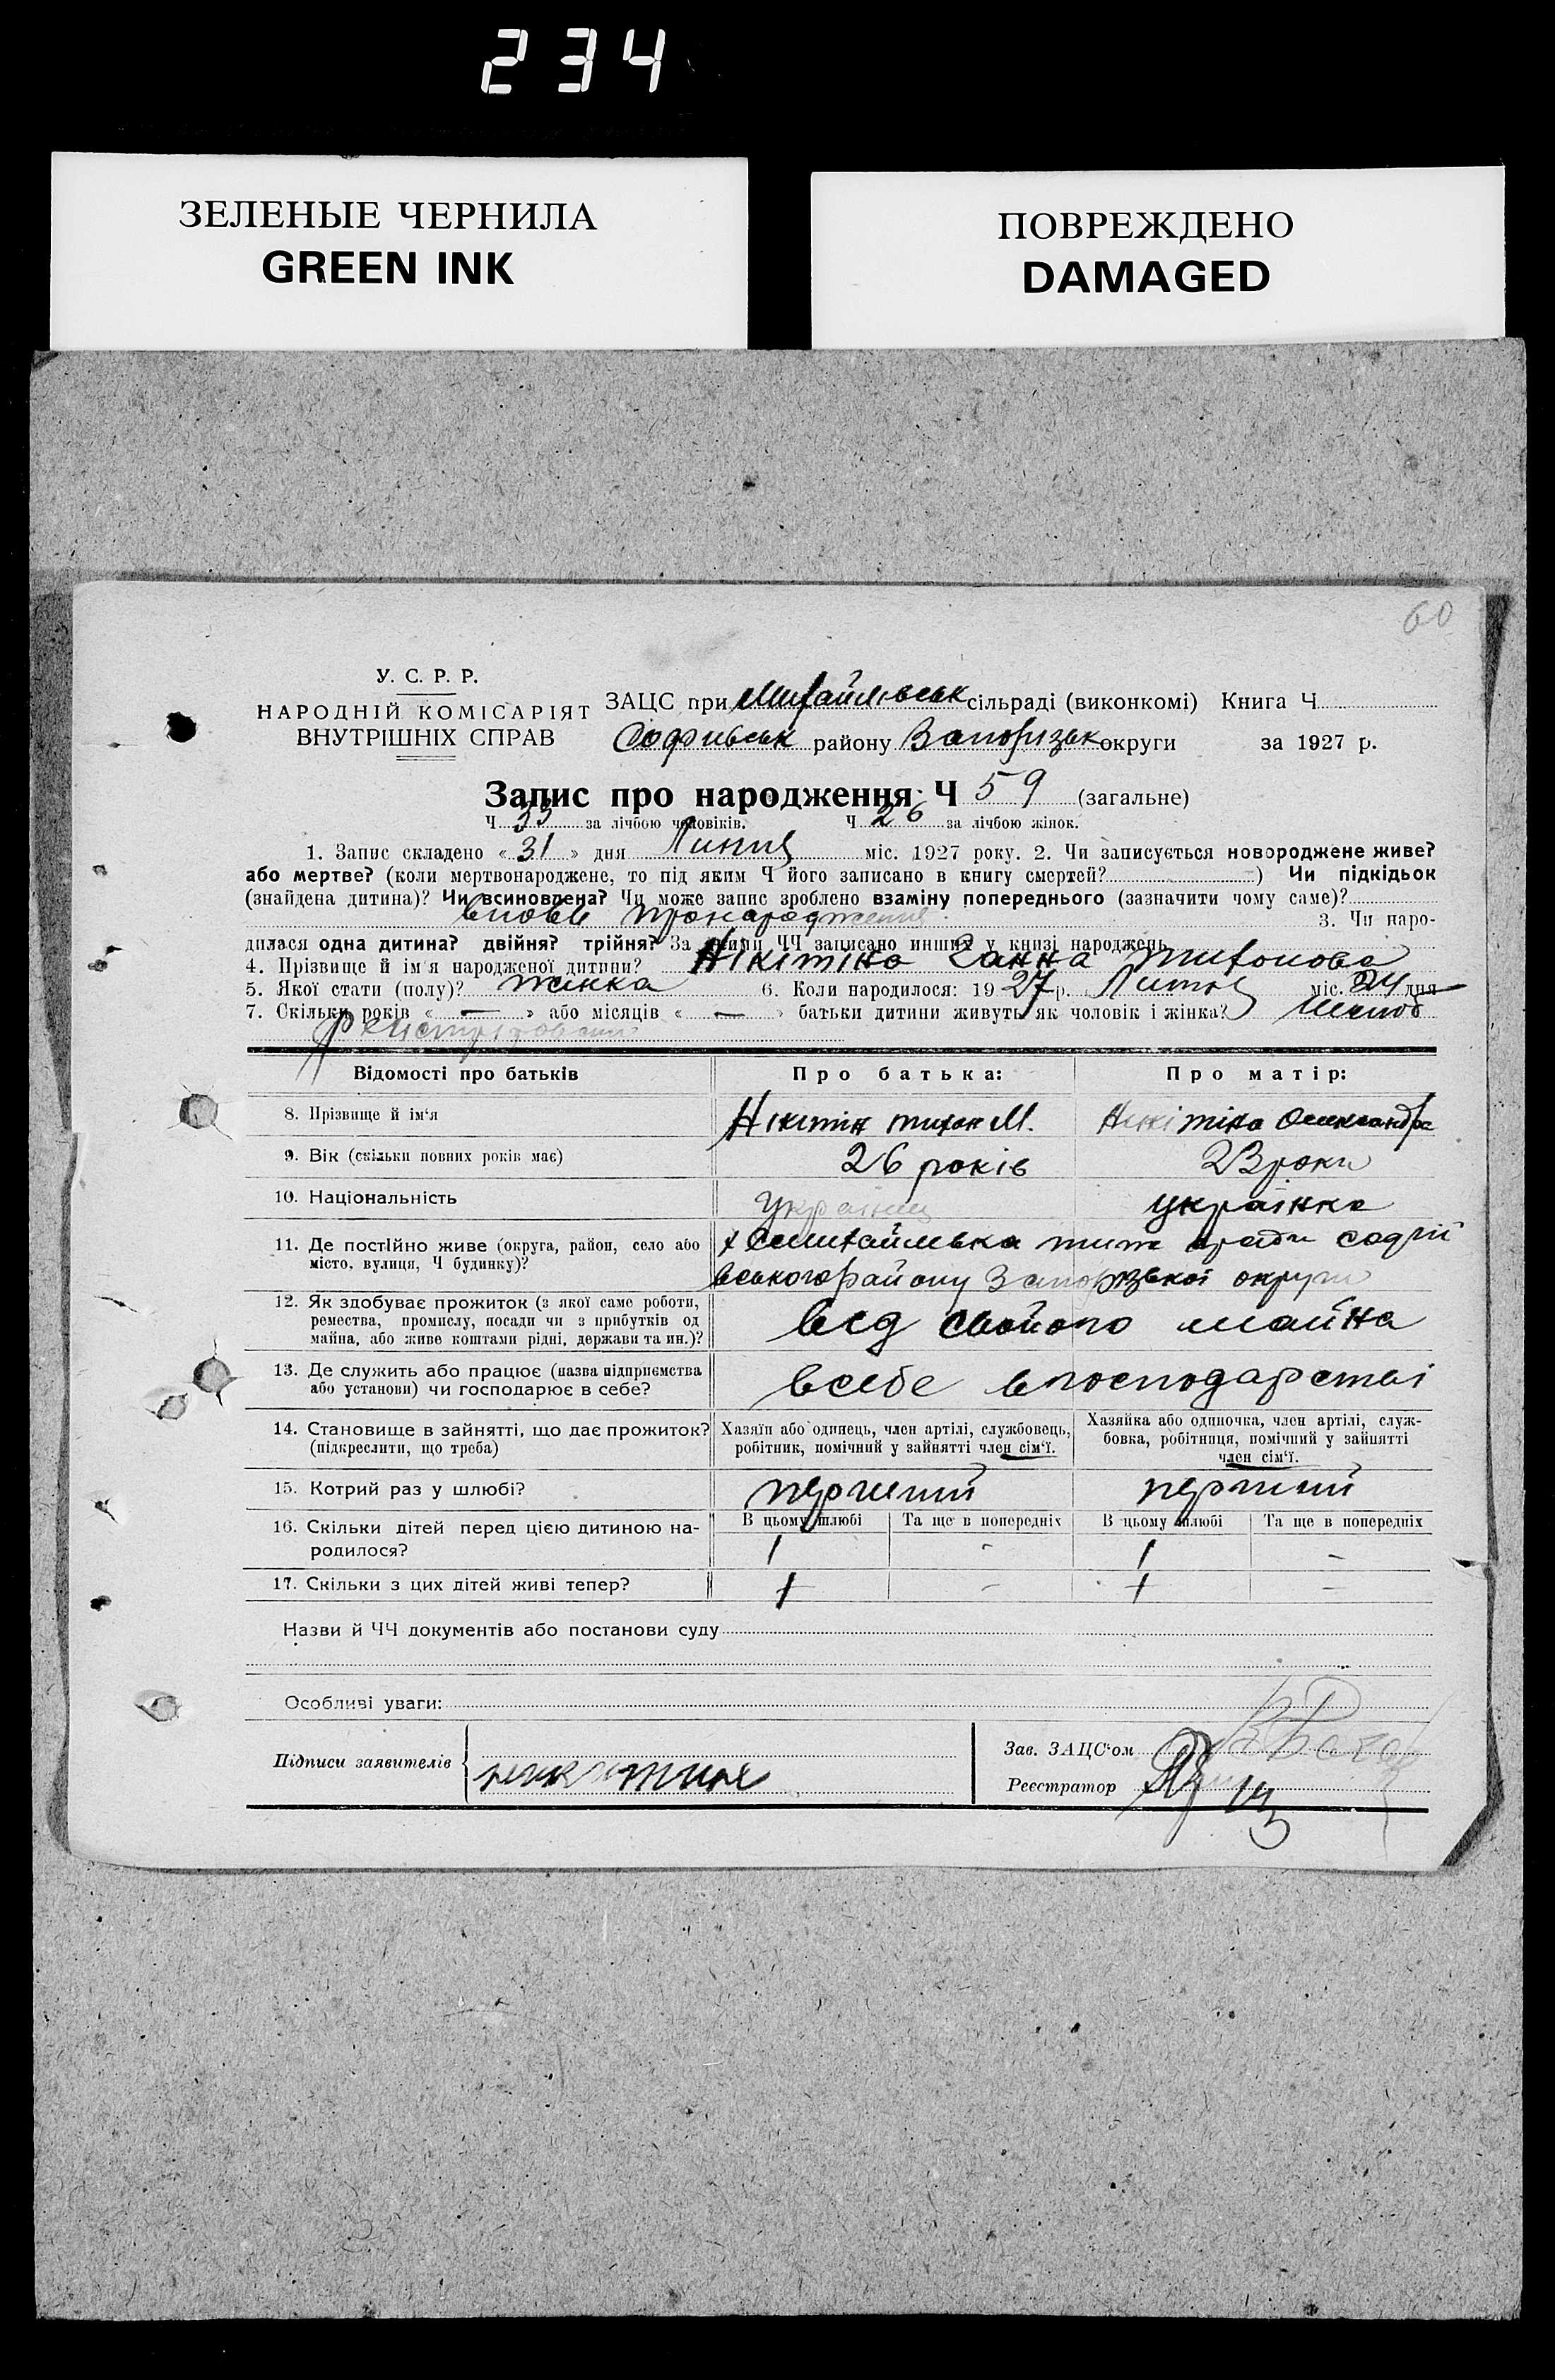 234
ЗЕЛЕНЫЕ ЧЕРНИЛА
GREEN INK
ПОВРЕЖДЕНО
DAMAGED
60
У. С. Р. Р.
НАРОДНІЙ КОМІСАРІЯТ
ВНУТРІШНІХ СПРАВ
ЗАЦС при Михайлівськ сільраді (виконкомі) Книга Ч
Софиевськ району Запорізьк округи за 1927 р.
Запис про народження Ч 59 (загальне)
Ч 33 за лічбою чоловіків. Ч 26 за лічбою жінок.
1. Запис складено « 31 » дня Липця міс. 1927 року. 2. Чи записується новороджене живе?
або мертве? (коли мертвонароджене, то під яким Ч його записано в книгу смертей? ) Чи підкідьок
(знайдена дитина)? Чи всиновлена? Чи може запис зроблено взаміну попереднього (зазначити чому саме)?
вновь пронародження 3. Чи наро-
дилася одна дитина? двійня? трійня? За якими ЧЧ записано инших у книзі народжень
4. Прізвище й ім'я народженої дитини? Нікітіна Ганна Тихонова
5. Якої стати (полу)? жінка 6. Коли народилося: 19 27 р. міс. 24 дня
7. Скільки років « — » або місяців « — » батьки дитини живуть як чоловік і жінка? Шлюб
Відомості про батьків
Про батька:
Про матір:
8. Прізвище й ім'я
Нікітін Тихон М.
Нікітіна Олександра
9. Вік (скільки повних років має)
26 років
23 роки
10. Національність
українець
українка
11. Де постійно живе (округа, район, село або
місто, вулиця, Ч будинку)?
Михайлівка тиж ради Софії
вського району Запорізької округи
12. Як здобуває прожиток (з якої саме роботи,
ремества, промислу, посади чи з прибутків од
майна, або живе коштами рідні, держави та ин.)?
від свойого майна
13. Де служить або працює (назва підприємства
або установи) чи господарює в себе?
в себе в господарстві
14. Становище в зайнятті, що дає прожиток?
(підкреслити, що треба)
Хазяїн або одинець, член артілі, службовець,
робітник, помічний у зайнятті член сім'ї.
Хазяйка або одиночка, член артілі, служ-
бовка, робітниця, помічний у зайнятті
член сім'ї.
15. Котрий раз у шлюбі?
перший
перший
16. Скільки дітей перед цією дитиною на-
родилося?
В цьому шлюбі
Та ще в попередніх
В цьому шлюбі
Та ще в попередніх
1 - 1 -
17. Скільки з цих дітей живі тепер?
1 - 1 -
Назви й ЧЧ документів або постанови суду
Особливі уваги:
Підписи заявителів
Зав. ЗАЦС'ом
Реєстратор